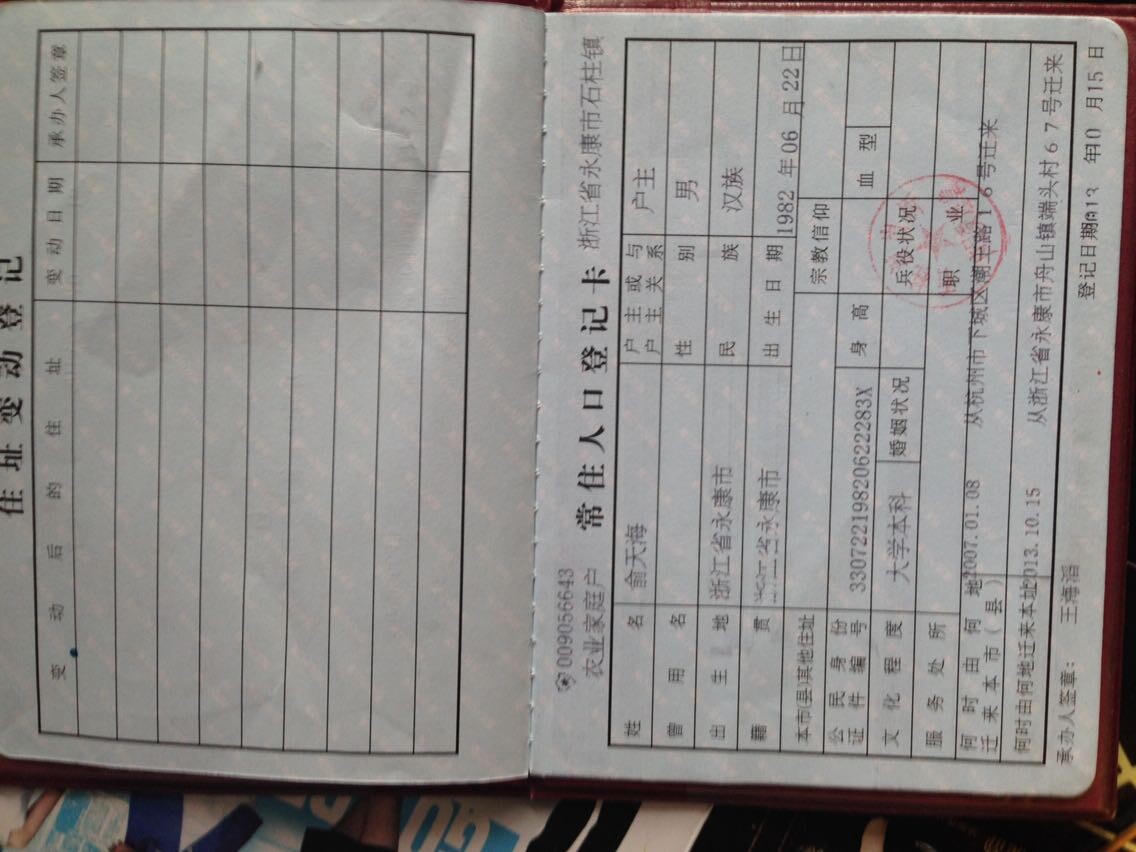 住址变动登记
变动后的住址 变动日期 承办人签章
009056643
农业家庭户 常住人口登记卡 浙江省永康市石柱镇
姓名 俞天海 户主或与户主关系 户主
曾用名 性别 男
出生地 浙江省永康市 民族 汉族
籍贯 浙江省永康市 出生日期 1982年06月22日
本市(县)其他住址 宗教信仰
公民身份证件编号 33072219820622283X 身高 血型
文化程度 大学本科 婚姻状况 兵役状况
服务处所 职业
何时由何地迁来本市(县) 2007.01.08 从杭州市下城区潮王路16号迁来
何时由何地迁来本址 2013.10.15 从浙江省永康市舟山镇端头村67号迁来
承办人签章: 王海滔 登记日期 年10月15日